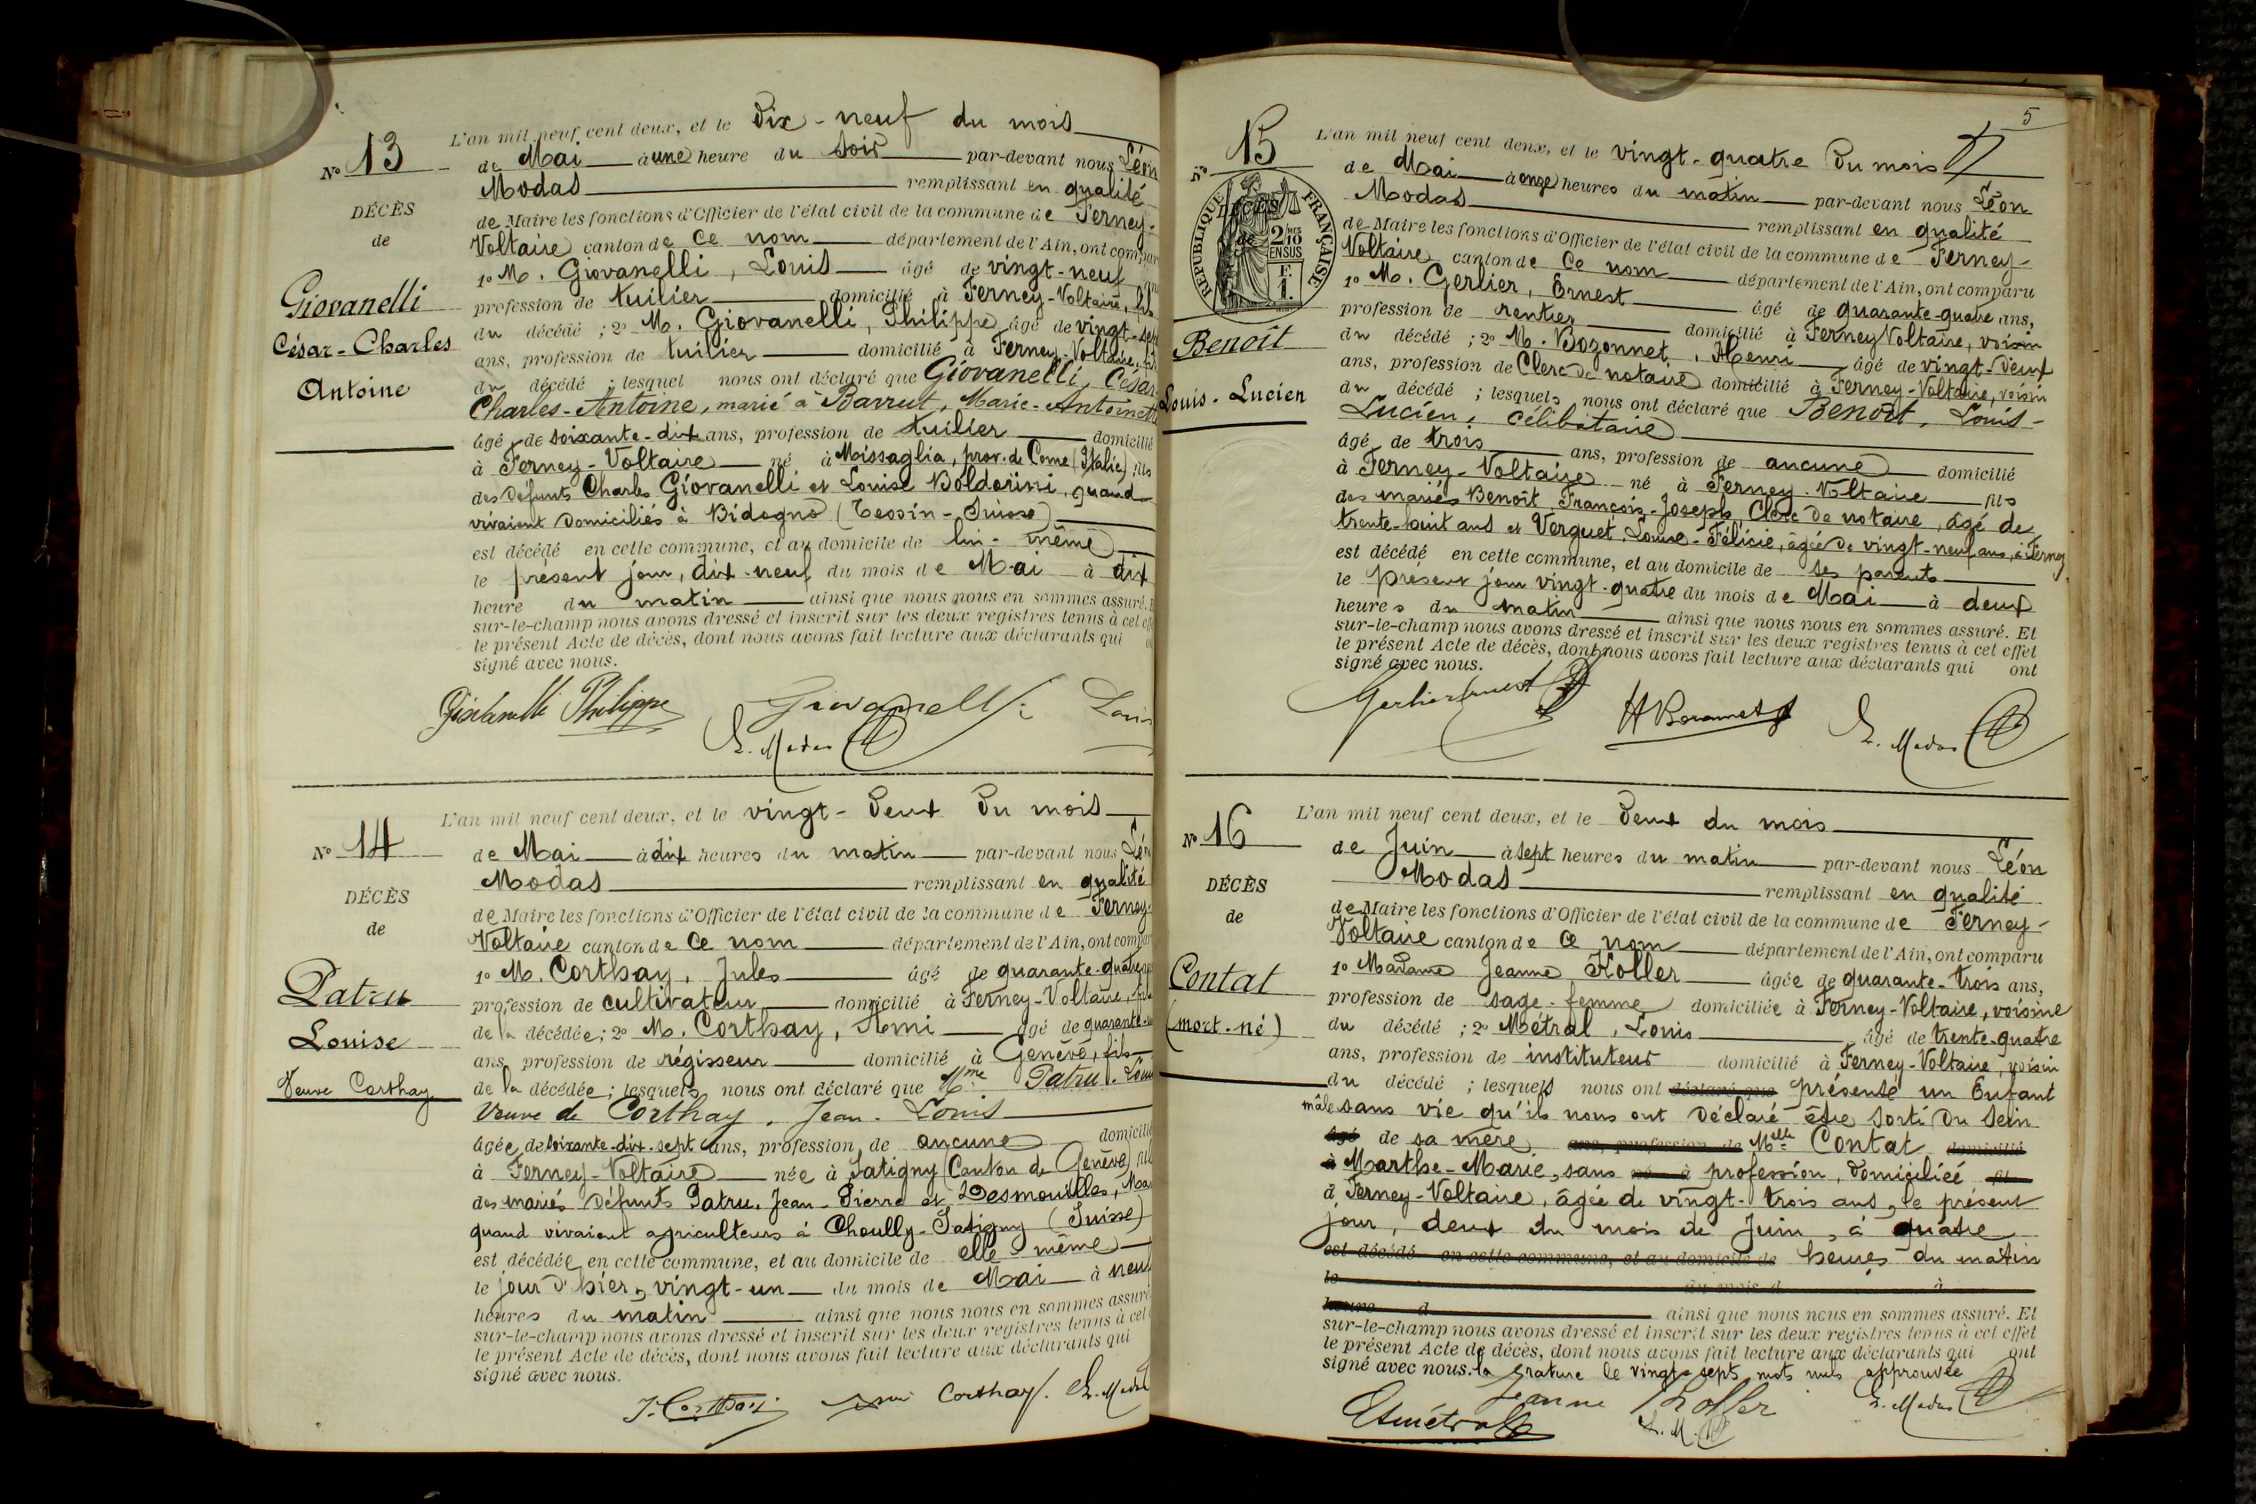 L'an mil neuf cent deux, et le Dix-neuf du mois
No 13
de Mai à une heure du soir par-devant nous Léon
Modas remplissant en qualité
DÉCÈS
de Maire les fonctions d'Officier de l'état civil de la commune de Ferney-
de
Voltaire canton de Ce nom département de l'Ain, ont compar
1o M. Giovanelli, Louis âgé de vingt-neuf
Giovanelli
profession de tuilier domicilié à Ferney-Voltaire, fils
du décédé ; 2o M. Giovanelli, Philippe âgé de vingt-sept
César-Charles
ans, profession de tuilier domicilié à Ferney-Voltaire, fils
Antoine
du décédé ; lesquel nous ont déclaré que Giovanelli, César
Charles-Antoine, marié à Barrut, Marie-Antoinett
âgé de soixante-dix ans, profession de tuilier domicilié
à Ferney-Voltaire né à Missaglia, prov. de Come (Italie) fils
des défunts Charles Giovanelli et Louise Boldorini, quand
vivaient domiciliés à Bidogno (Tessin-Suisse)
est décédé en cette commune, et au domicile de lui-même
le présent jour, dix-neuf du mois de Mai à dix
heure du matin ainsi que nous nous en sommes assuré. E
sur-le-champ nous avons dressé et inscrit sur les deux registres tenus à cet eff
le présent Acte de décès, dont nous avons fait lecture aux déclarants qui
signé avec nous.
Giovanelli Philippe Giovanelli Louis
L. Modas
L'an mil neuf cent deux, et le vingt-deux du mois
No 14
de Mai à dix heures du matin par-devant nous Léon
Modas remplissant en qualité
DÉCÈS
de Maire les fonctions d'Officier de l'état civil de la commune de Ferney-
de
Voltaire canton de Ce nom département de l'Ain, ont compar
1o M. Corthay, Jules âgé de quarante-quatre
Patru
profession de cultivateur domicilié à Ferney-Voltaire, fils
Louise
de la décédée ; 2o M. Corthay, Ami âgé de quarante-
ans, profession de régisseur domicilié à Genève, fils
Veuve Corthay
de la décédée ; lesquels nous ont déclaré que Mme Patru. Louise
Veuve de Corthay, Jean-Louis
âgée de soixante-dix-sept ans, profession de aucune domicilié
à Ferney-Voltaire née à Satigny (Canton de Genève) fil
des mariés défunts Patru, Jean-Pierre et Desmouilles, Ma
quand vivaient agriculteurs à Choully-Satigny (Suisse)
est décédée en cette commune, et au domicile de elle-même
le jour d'hier, vingt-un du mois de Mai à neuf
heures du matin ainsi que nous nous en sommes assuré
sur-le-champ nous avons dressé et inscrit sur les deux registres tenus à cet
le présent Acte de décès, dont nous avons fait lecture aux déclarants qui
signé avec nous.
J. Corthay Ami Corthay. L. Modas
5
L'an mil neuf cent deux, et le vingt-quatre du mois
No 15
de Mai à onze heures du matin par-devant nous Léon
Modas remplissant en qualité
RÉPUBLIQUE FRANÇAISE
DÉCÈS
de
2/10 EN SUS
F.
1.
de Maire les fonctions d'Officier de l'état civil de la commune de Ferney-
Voltaire canton de Ce nom département de l'Ain, ont comparu
1o M. Gerlier, Ernest âgé de quarante-quatre ans,
profession de rentier domicilié à Ferney Voltaire, voisin
Benoît
du décédé ; 2o M. Bozonnet, Henri âgé de vingt-deux
ans, profession de Clerc de notaire domicilié à Ferney-Voltaire, voisin
Louis-Lucien
du décédé ; lesquels nous ont déclaré que Benoît, Louis-
Lucien, célibataire
âgé de trois ans, profession de aucune domicilié
à Ferney-Voltaire né à Ferney-Voltaire fils
des mariés Benoît François-Joseph, Clerc de notaire, âgé de
trente-huit ans et Verguet, Louise-Félicie, âgée de vingt-neuf ans, à Ferney
est décédé en cette commune, et au domicile de ses parents
le présent jour vingt-quatre du mois de Mai à deux
heures du matin ainsi que nous nous en sommes assuré. Et
sur-le-champ nous avons dressé et inscrit sur les deux registres tenus à cet effet
le présent Acte de décès, dont nous avons fait lecture aux déclarants qui ont
signé avec nous.
Gerlier Ernest H Bozonnet L. Modas
L'an mil neuf cent deux, et le deux du mois
No 16
de Juin à sept heures du matin par-devant nous Léon
Modas remplissant en qualité
DÉCÈS
de Maire les fonctions d'Officier de l'état civil de la commune de Ferney-
de
Voltaire canton de Ce nom département de l'Ain, ont comparu
1o Madame Jeanne Koller âgée de quarante-trois ans,
Contat
profession de sage-femme domiciliée à Ferney-Voltaire, voisine
(mort-né)
du décédé ; 2o Métral, Louis âgé de trente-quatre
ans, profession de instituteur domicilié à Ferney-Voltaire, voisin
du décédé ; lesquels nous ont déclaré que présenté un Enfant
mâle sans vie qu'ils nous ont déclaré être sorti du sein
âgé de sa mère ans, profession de Melle Contat domicilié
à Marthe-Marie, sans né à profession, domiciliée fil
à Ferney-Voltaire, âgée de vingt-trois ans, le présent
jour, deux du mois de Juin, à quatre
est décédé en cette commune, et au domicile de heures du matin
le du mois d à
heure d ainsi que nous nous en sommes assuré. Et
sur-le-champ nous avons dressé et inscrit sur les deux registres tenus à cet effet
le présent Acte de décès, dont nous avons fait lecture aux déclarants qui ont
signé avec nous. la rature de vingt-sept mots nuls approuvée
Jeanne Koller L. Modas
Métral L. M.